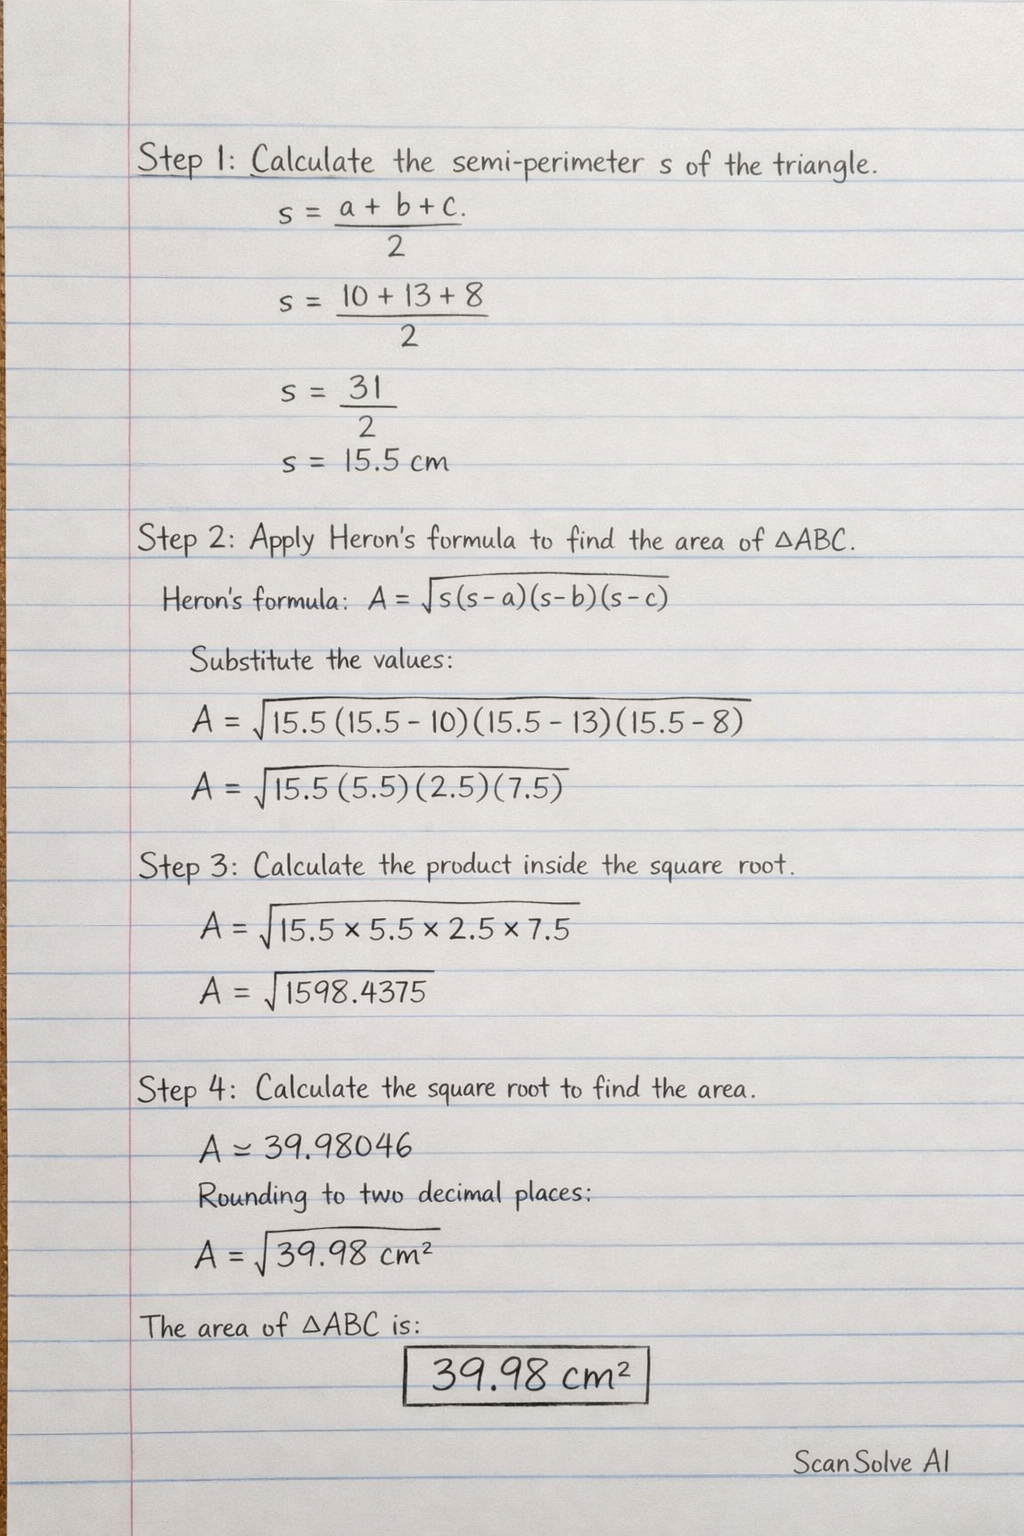 Step 1: Calculate the semi-perimeter s of the triangle.
s = a + b + c.
2
s = 10 + 13 + 8
2
s = 31
2
s = 15.5 cm
Step 2: Apply Heron's formula to find the area of △ABC.
Heron's formula: A = √s(s-a)(s-b)(s-c)
Substitute the values:
A = √15.5 (15.5 - 10)(15.5 - 13)(15.5 - 8)
A = √15.5 (5.5)(2.5)(7.5)
Step 3: Calculate the product inside the square root.
A = √15.5 × 5.5 × 2.5 × 7.5
A = √1598.4375
Step 4: Calculate the square root to find the area.
A ≃ 39.98046
Rounding to two decimal places:
A = √39.98 cm²
The area of △ABC is:
39.98 cm²
ScanSolve AI